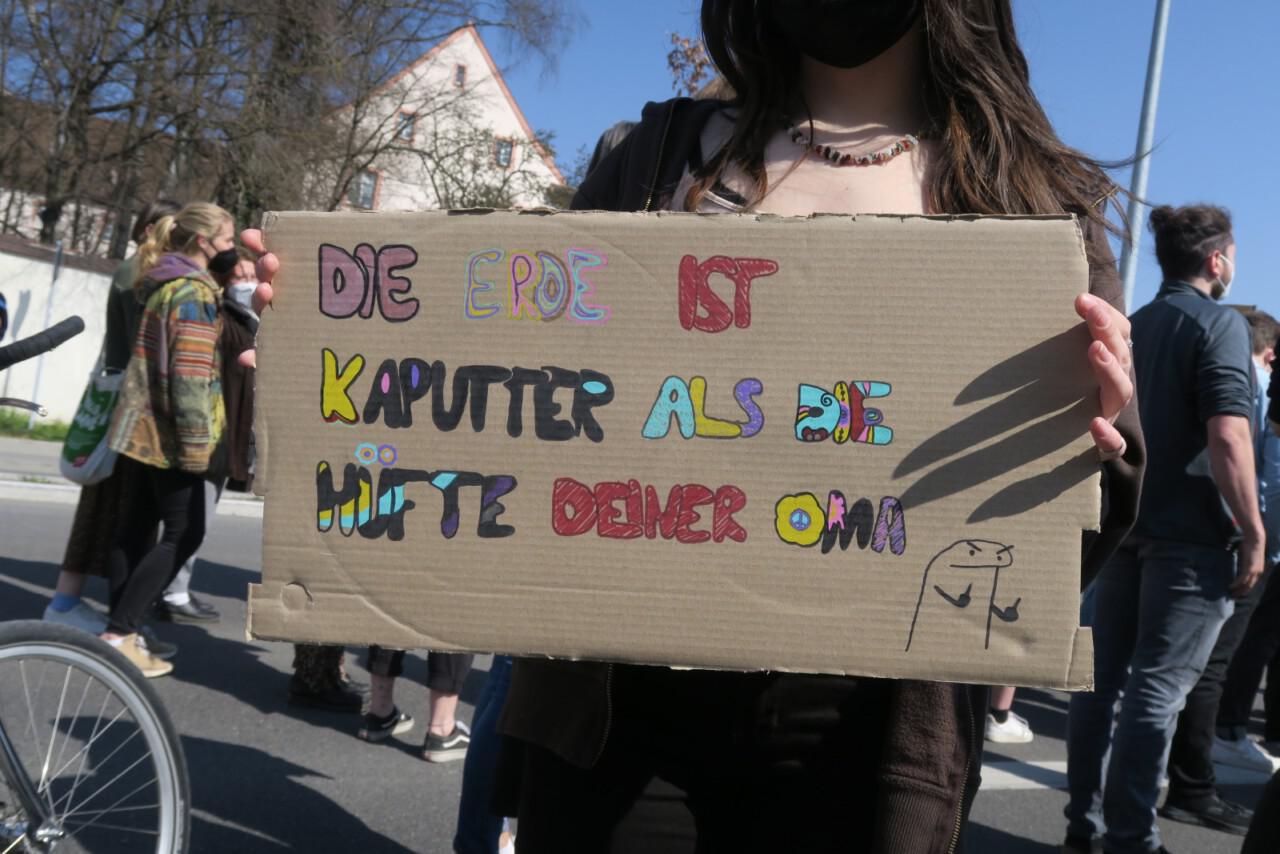 DIE ERDE IST
KAPUTTER ALS DIE
HÜFTE DEINER OMA